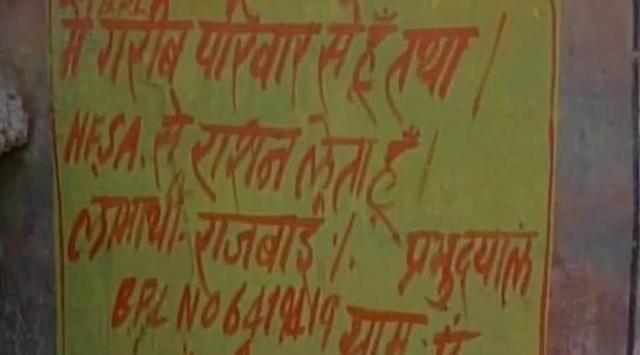 मैं गरीब परिवार से हूँ तथा /
N.F.S.A. से राशन लेता हूँ ।
लाभार्थी - राजबाई /. प्रभुदयाल
BPL NO 6419419 ग्राम